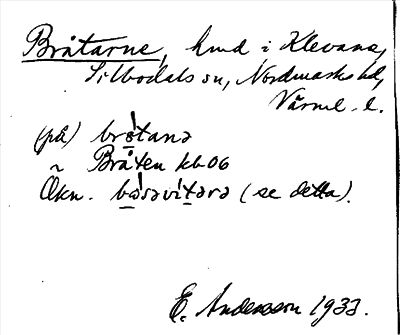 Bråtarne, hmd i Klevane,
Silbodals sn, Nordmarks hd,
Värml. l.
(på) brɷ̀tanə
~ Bråten kb 06
Ökn. bɷsəvitərə (se detta).
E. Andersson 1933.